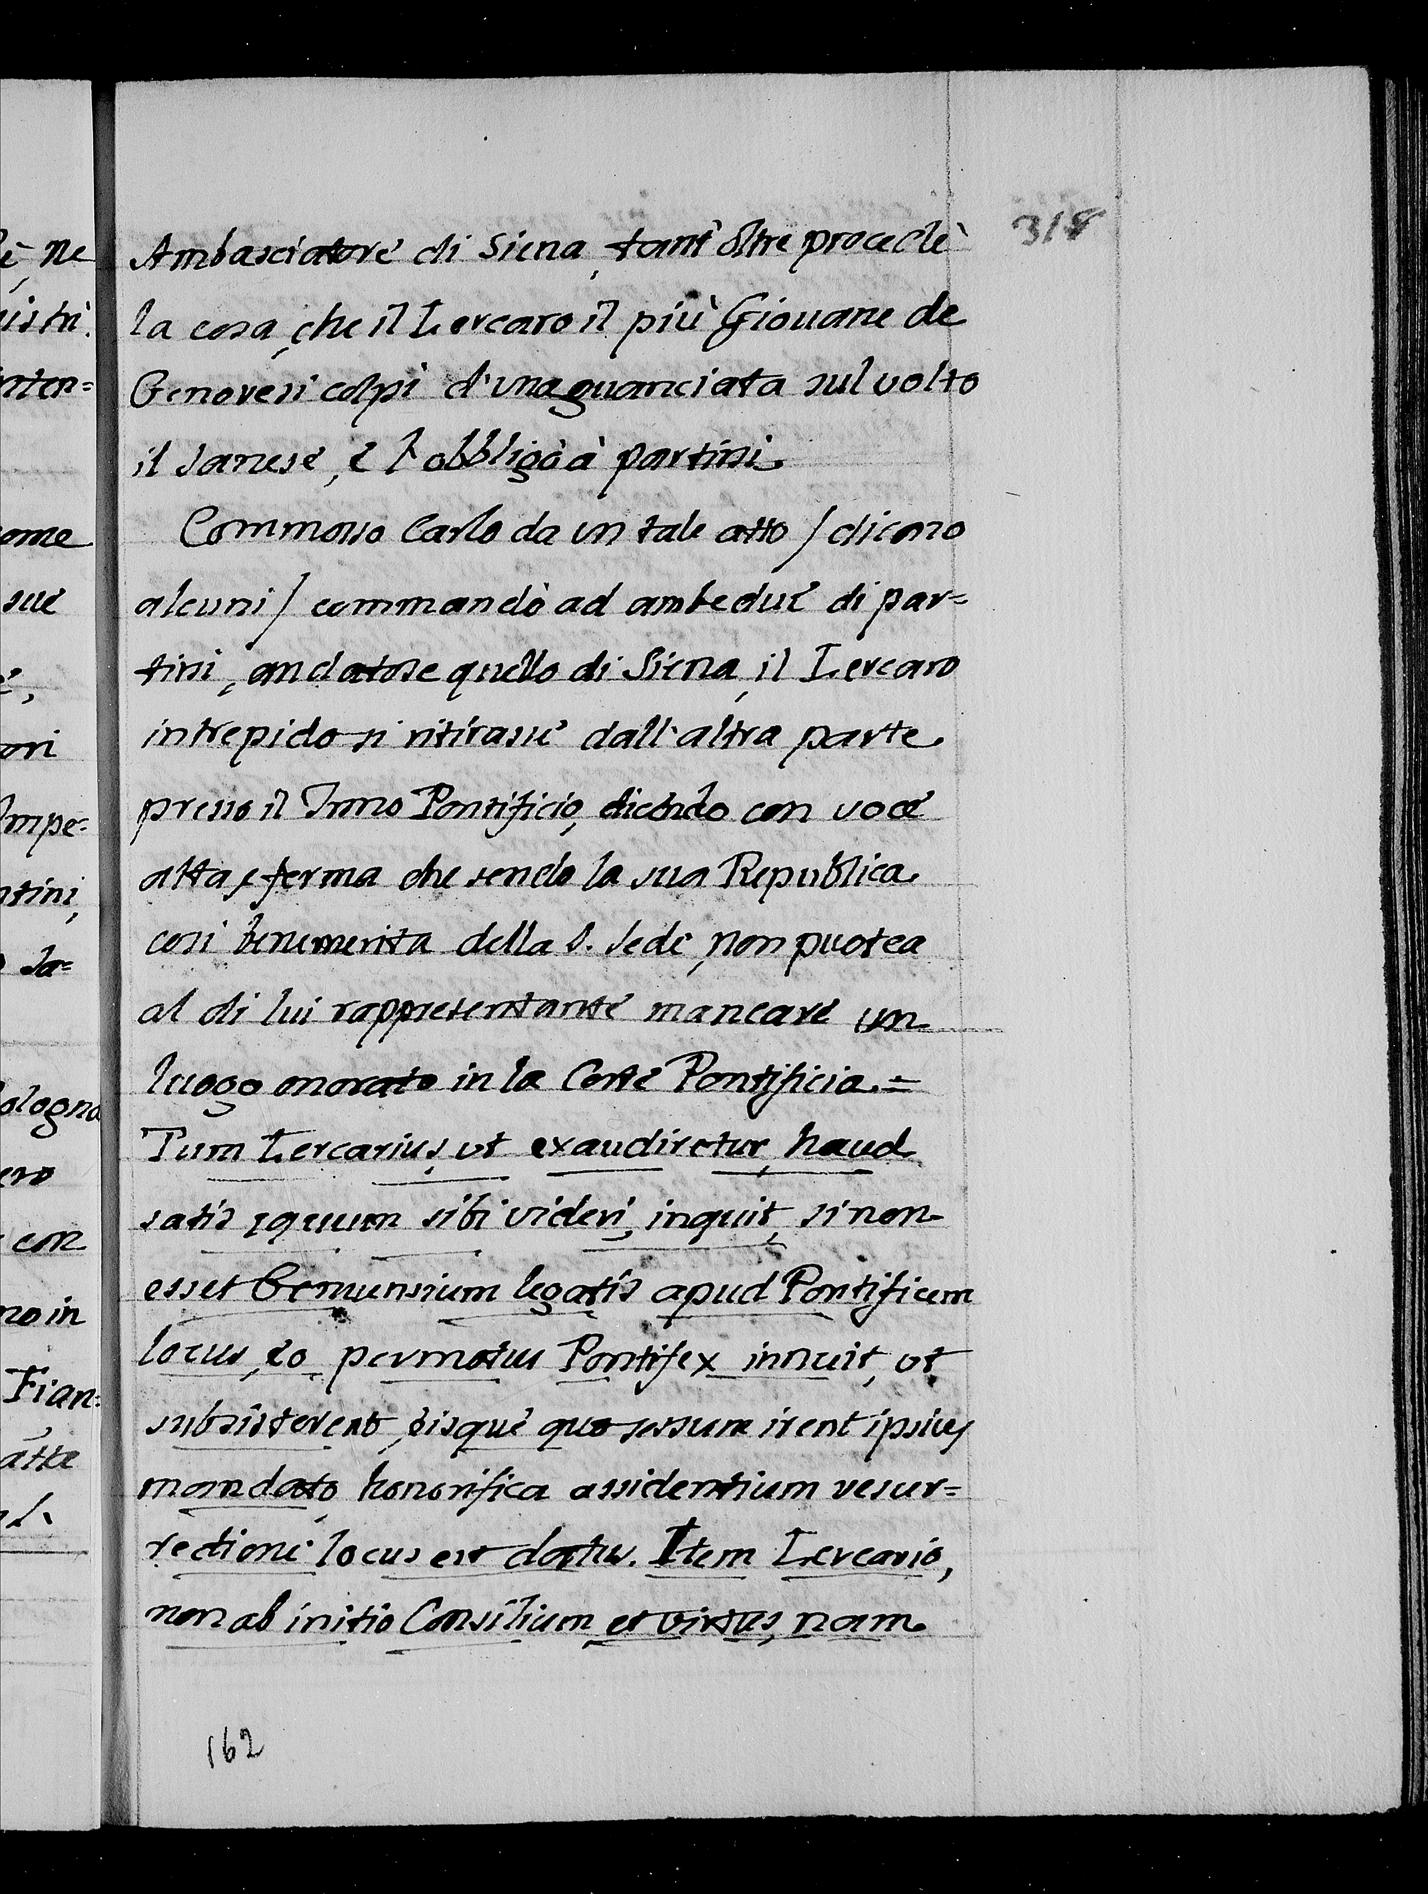 318
Ambasciatore di Siena, tant'oltre procedè
la cosa, che il Lercaro il più Giouane de
Genovesi colpì d'una guanciata sul volto
il Sanese, e l'obbligò à partirsi
Commosso Carlo da un tale atto / dicono
alcuni / commandò ad ambedue di par=
tirsi, andatose quello di Siena, il Lercaro
intrepido si ritirasse dall'altra parte
presso il Trono Pontificio, dicendo con voce
alta, e ferma che sendo la sua Republica
cosi benemerita della S. Sede, non puotea
al di lui rappresentante mancare un
luogo onorato in la Corte Pontificia. =
Tum Lercarius, ut exaudiretur, haud
satis equum sibi videri, inquit, si non
esset Genuensium legatis apud Pontificem
locus, eo permotus Pontifex innuit, ut
subsisterent, eisque quo sessum irent ipsius
mandato, honorifica assidentium resur=
rectione locus est datus. Item Lercario,
non ab initio Consilium et virtus, nam
162
è, ne
nistri.
nten=
ome
sue
ori
Impe=
ntini,
Sa=
ologna
ero
con
no in
Fian=
atta